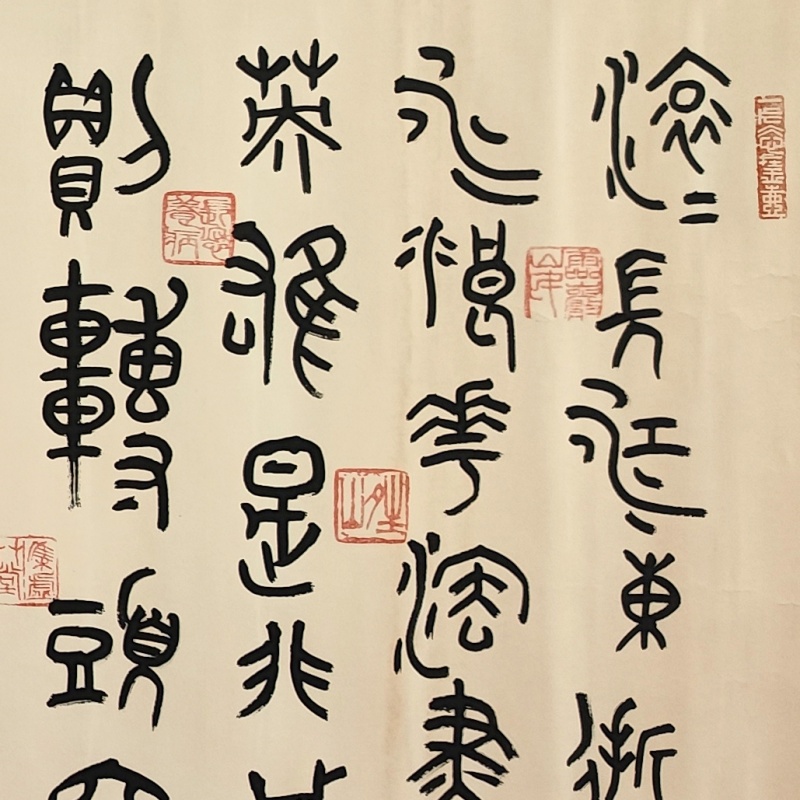 滾〻長江東逝
水浪花淘盡
英雄是非成
敗轉頭空